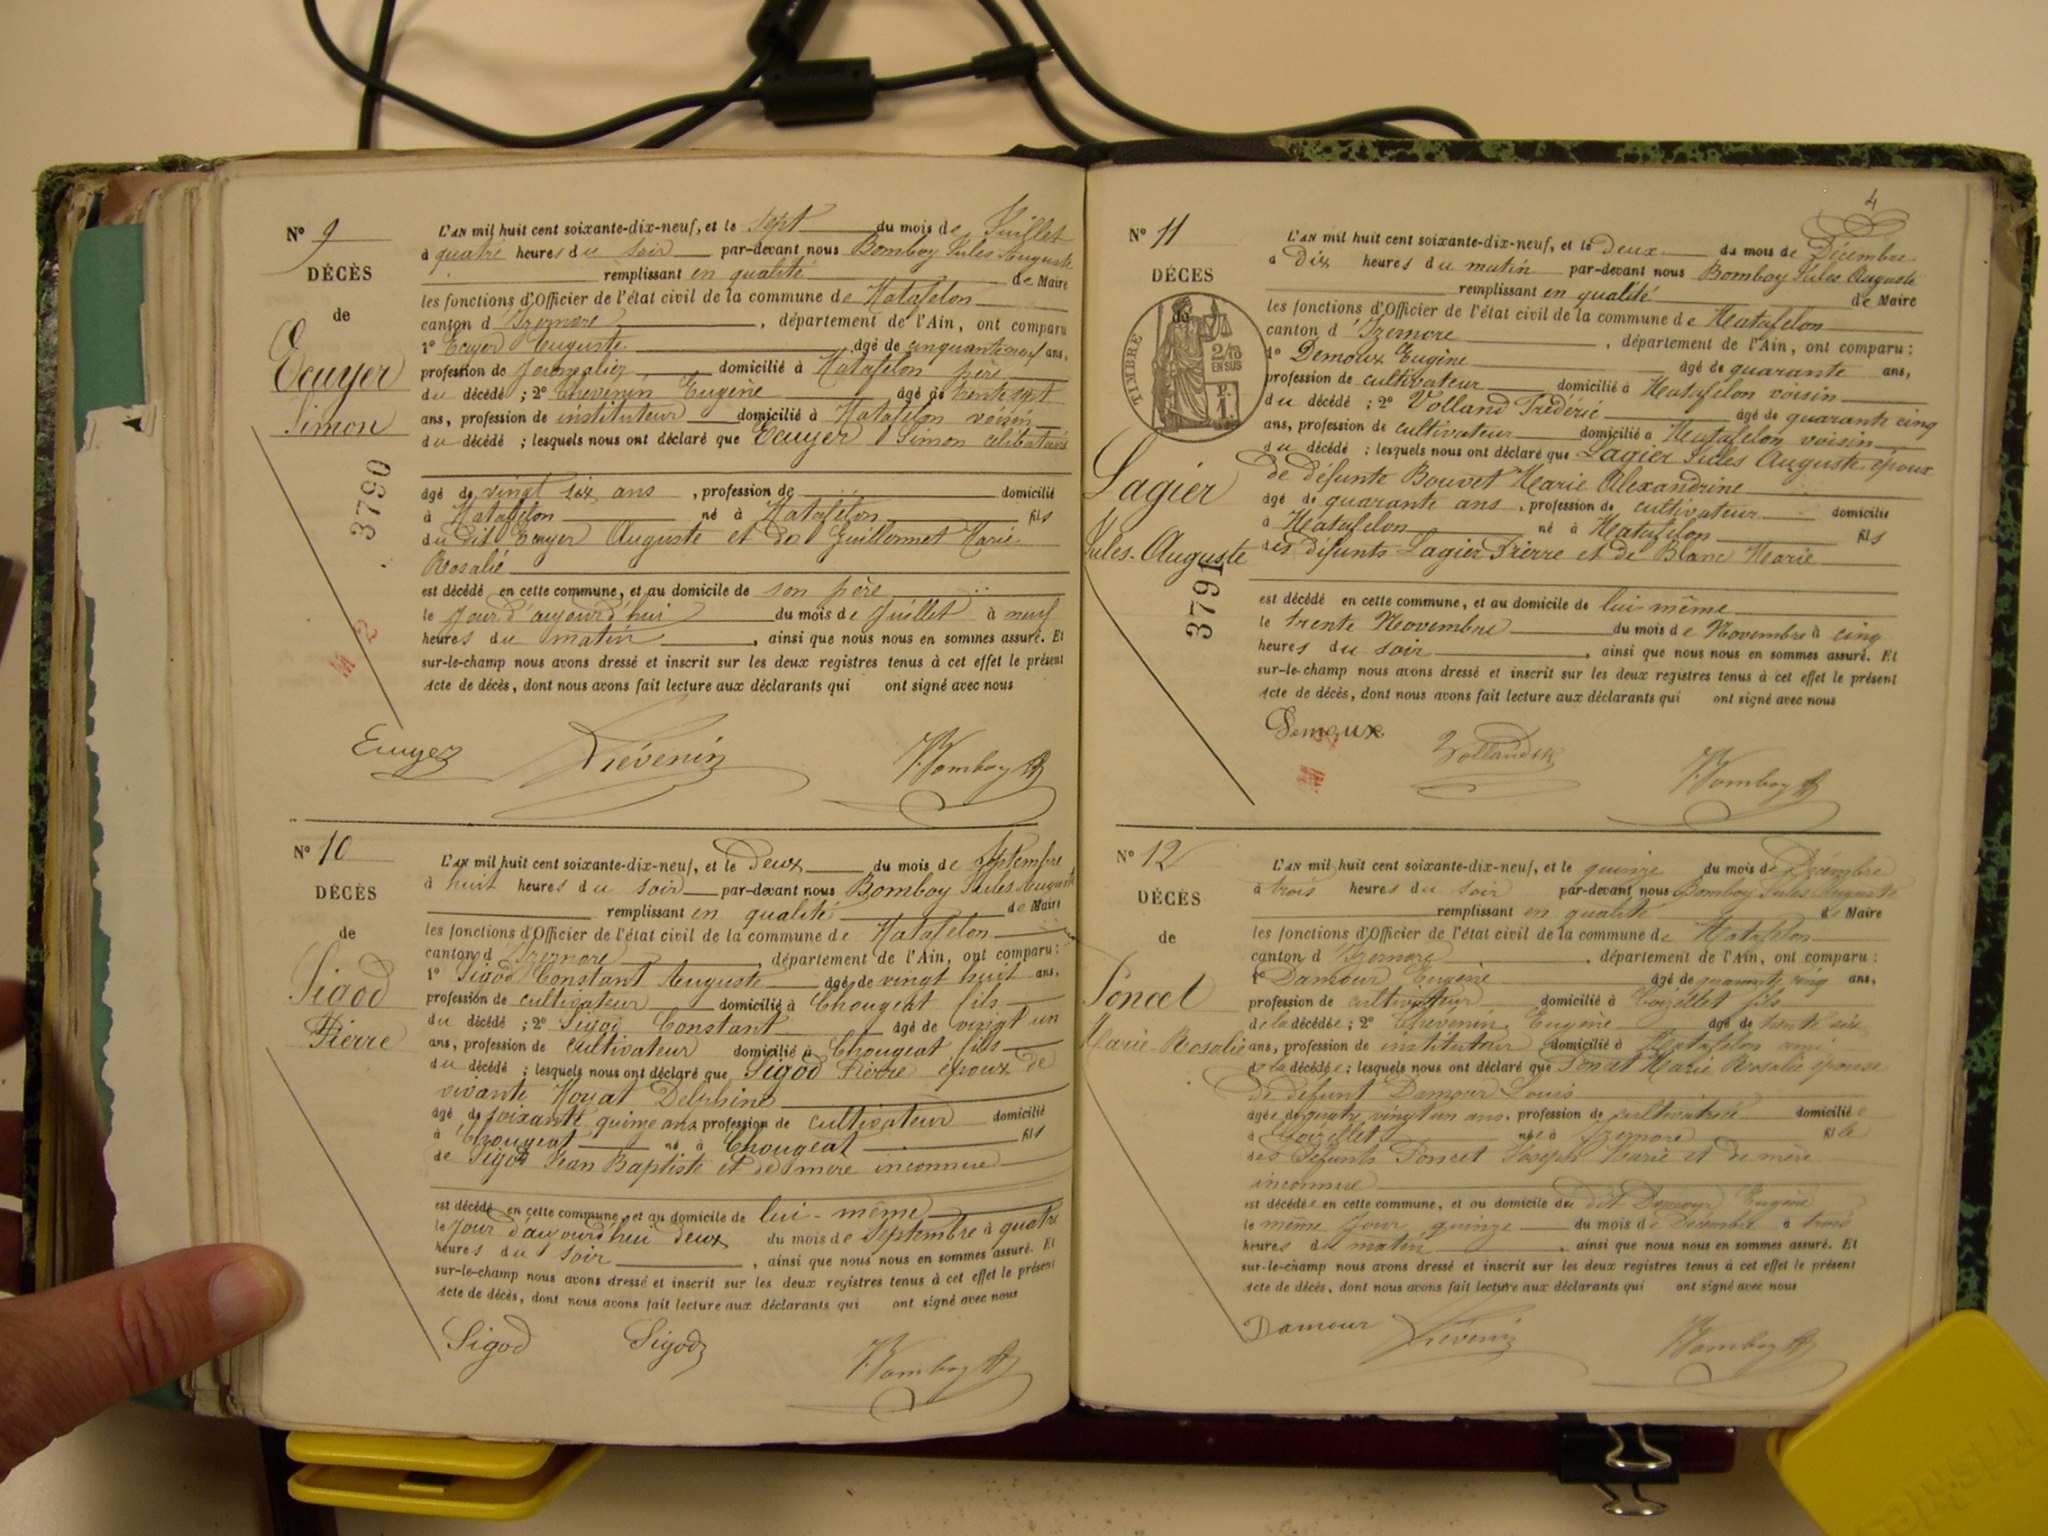 N° 9
DÉCÈS
de
Ecuyer
Simon
3790
L'AN mil huit cent soixante-dix-neuf, et le sept du mois de Juillet
à quatre heures du soir par-devant nous Bomboy Jules Auguste
remplissant en qualité de Maire
les fonctions d'Officier de l'état civil de la commune de Matafelon
canton d'Izernore, département de l'Ain, ont comparu
1° Ecuyer Auguste âgé de cinquante neuf ans,
profession de Journalier domicilié à Matafelon père
du décédé ; 2° Thevenin Eugène âgé de trente sept
ans, profession de instituteur domicilié à Matafelon voisin
du décédé ; lesquels nous ont déclaré que Ecuyer Simon célibataire
âgé de vingt six ans, profession de domicilié
à Matafelon né à Matafelon fils
du dit Ecuyer Auguste et de Guillermet Marie
Rosalie
est décédé en cette commune, et au domicile de son père
le Jour d'aujourd'hui du mois de Juillet à neuf
heures du matin, ainsi que nous nous en sommes assuré. Et
sur-le-champ nous avons dressé et inscrit sur les deux registres tenus à cet effet le présent
acte de décès, dont nous avons fait lecture aux déclarants qui ont signé avec nous
Ecuyer Thévenin J. Bomboy
N° 10
DÉCÈS
de
Sigod
Pierre
L'AN mil huit cent soixante-dix-neuf, et le Deux du mois de Septembre
à huit heures du soir par-devant nous Bomboy Jules Auguste
remplissant en qualité de Maire
les fonctions d'Officier de l'état civil de la commune de Matafelon
canton d'Izernore, département de l'Ain, ont comparu :
1° Sigod Constant Auguste âgé de vingt huit ans,
profession de cultivateur domicilié à Chougeat fils
du décédé ; 2° Sigod Constant âgé de vingt un
ans, profession de cultivateur domicilié à Chougeat fils
du décédé ; lesquels nous ont déclaré que Sigod Pierre époux de
vivante Moyat Delphine
âgé de soixante quinze ans, profession de cultivateur domicilié
à Chougeat né à Chougeat fils
de Sigod Jean Baptiste et de mère inconnue
est décédé en cette commune et au domicile de lui-même
le Jour d'aujourd'hui deux du mois de Septembre à quatre
heures du soir, ainsi que nous nous en sommes assuré. Et
sur-le-champ nous avons dressé et inscrit sur les deux registres tenus à cet effet le présent
acte de décès, dont nous avons fait lecture aux déclarants qui ont signé avec nous
Sigod Sigod J. Bomboy
4
N° 11
DÉCÈS
de
TIMBRE
2/10
EN SUS
Lagier
Jules-Auguste
3791
L'AN mil huit cent soixante-dix-neuf, et le Deux du mois de Décembre
à Dix heures du matin par-devant nous Bomboy Jules Auguste
remplissant en qualité de Maire
les fonctions d'Officier de l'état civil de la commune de Matafelon
canton d'Izernore, département de l'Ain, ont comparu :
1° Demoux Eugène âgé de quarante ans,
profession de cultivateur domicilié à Matafelon voisin
du décédé ; 2° Volland Frédéric âgé de quarante cinq
ans, profession de cultivateur domicilié à Matafelon voisin
du décédé ; lesquels nous ont déclaré que Lagier Jules Auguste époux
de défunte Bouvet Marie Alexandrine
âgé de quarante ans, profession de cultivateur domicilié
à Matafelon né à Matafelon fils
des défunts Lagier Pierre et de Blanc Marie
est décédé en cette commune, et au domicile de lui-même
le trente Novembre du mois de Novembre à cinq
heures du soir, ainsi que nous nous en sommes assuré. Et
sur-le-champ nous avons dressé et inscrit sur les deux registres tenus à cet effet le présent
acte de décès, dont nous avons fait lecture aux déclarants qui ont signé avec nous
Demoux Volland J. Bomboy
N° 12
DÉCÈS
de
Poncet
Marie-Rosalie
L'AN mil huit cent soixante-dix-neuf, et le quinze du mois de Décembre
à trois heures du soir par-devant nous Bomboy Jules Auguste
remplissant en qualité de Maire
les fonctions d'Officier de l'état civil de la commune de Matafelon
canton d'Izernore, département de l'Ain, ont comparu :
1° Damour Eugène âgé de quarante cinq ans,
profession de cultivateur domicilié à Coizellet fils
de la décédée ; 2° Thévenin Eugène âgé de trente six
ans, profession de instituteur domicilié à Matafelon ami
de la décédée ; lesquels nous ont déclaré que Poncet Marie Rosalie épouse
de défunt Damour Louis
âgée de quatre vingt un ans, profession de cultivatrice domiciliée
à Coizellet née à Izernore fille
des défunts Poncet Joseph Marie et de mère
inconnue
est décédée en cette commune, et au domicile du dit Damour Eugène
le même Jour quinze du mois de Décembre à trois
heures du matin, ainsi que nous nous en sommes assuré. Et
sur-le-champ nous avons dressé et inscrit sur les deux registres tenus à cet effet le présent
acte de décès, dont nous avons fait lecture aux déclarants qui ont signé avec nous
Damour Thévenin J. Bomboy